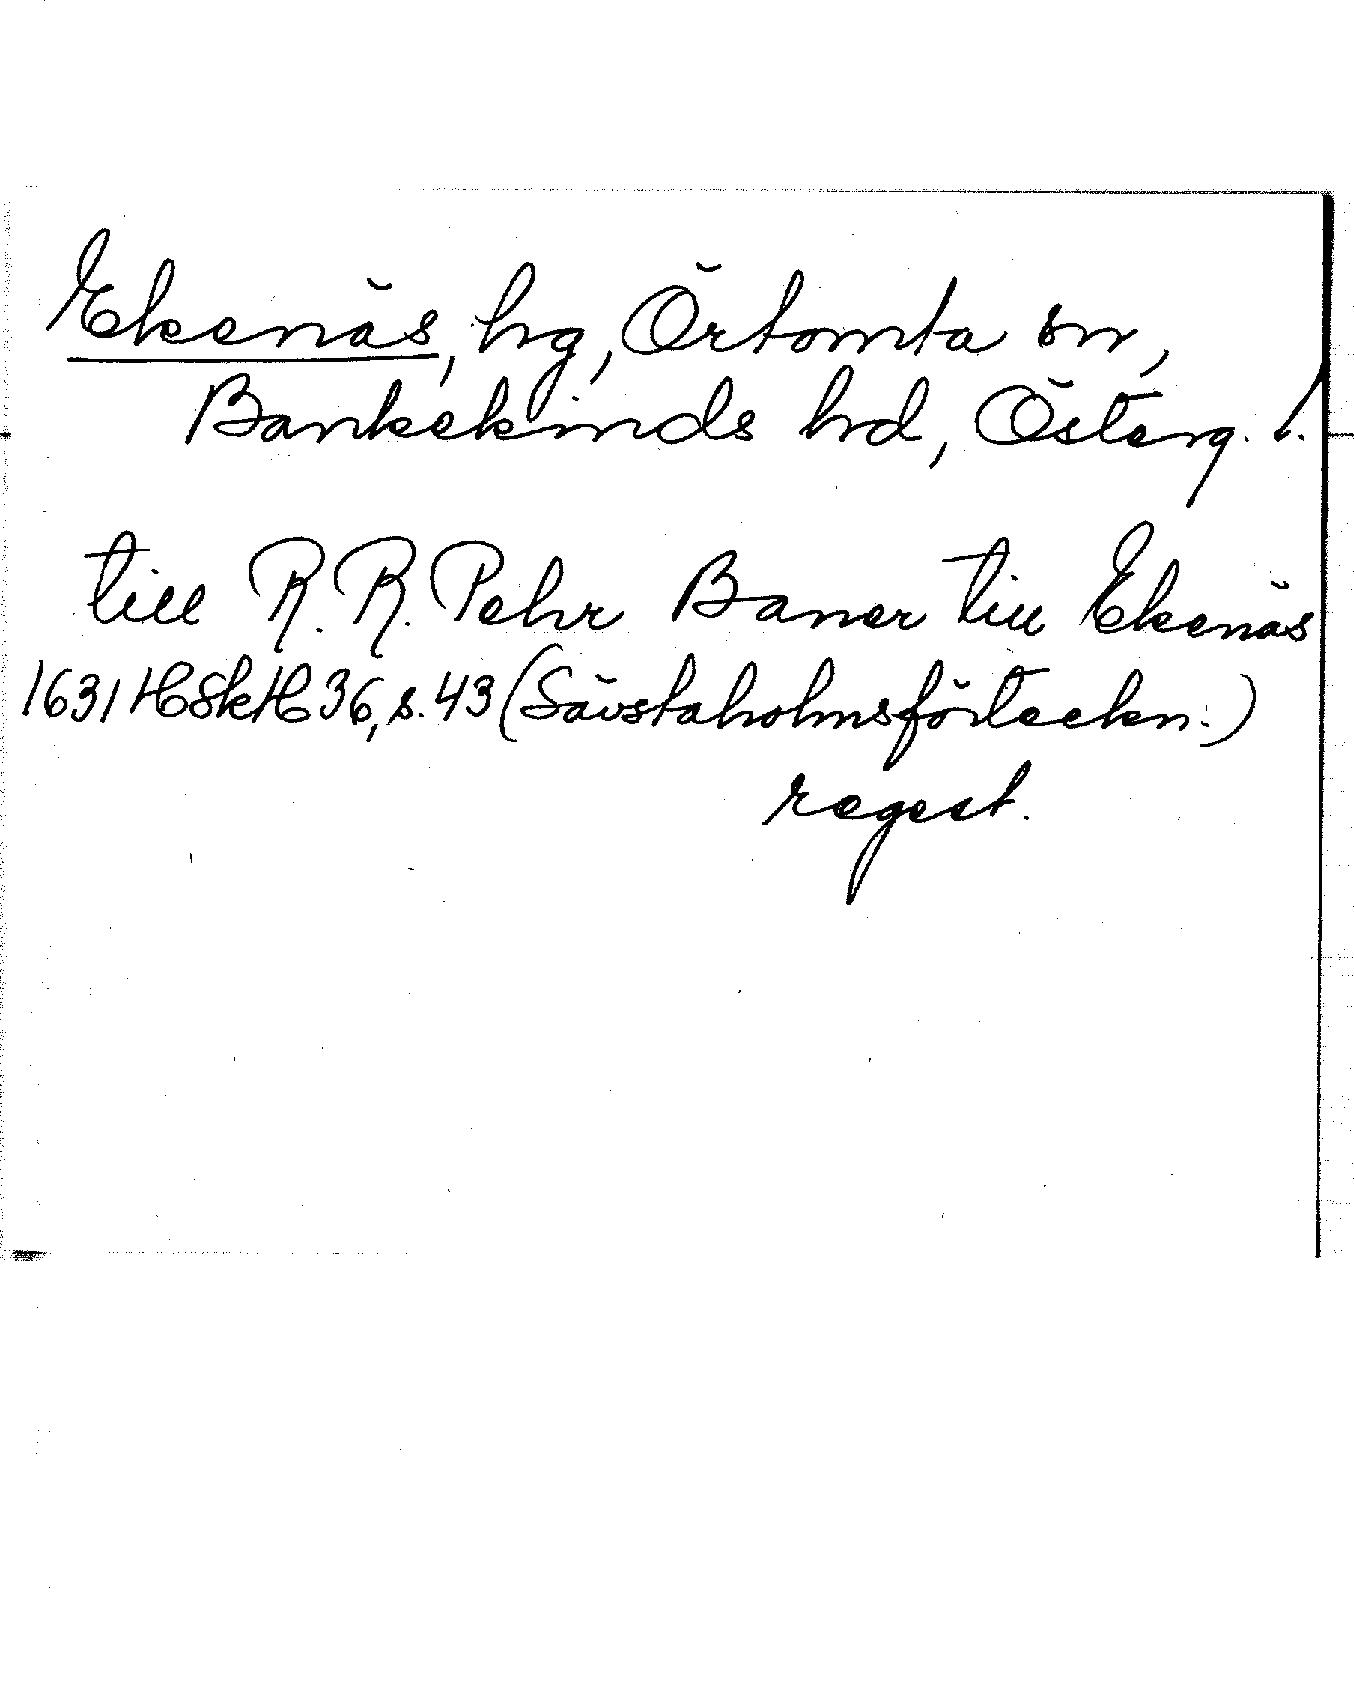 Ekenäs, hg, Örtomta sn,
Bankekinds hd, Österg. l.
till R.R. Pehr Baner till Ekenäs
1631 HSkH 36, s. 43 (Sävstaholmsförteckn.)
regest.